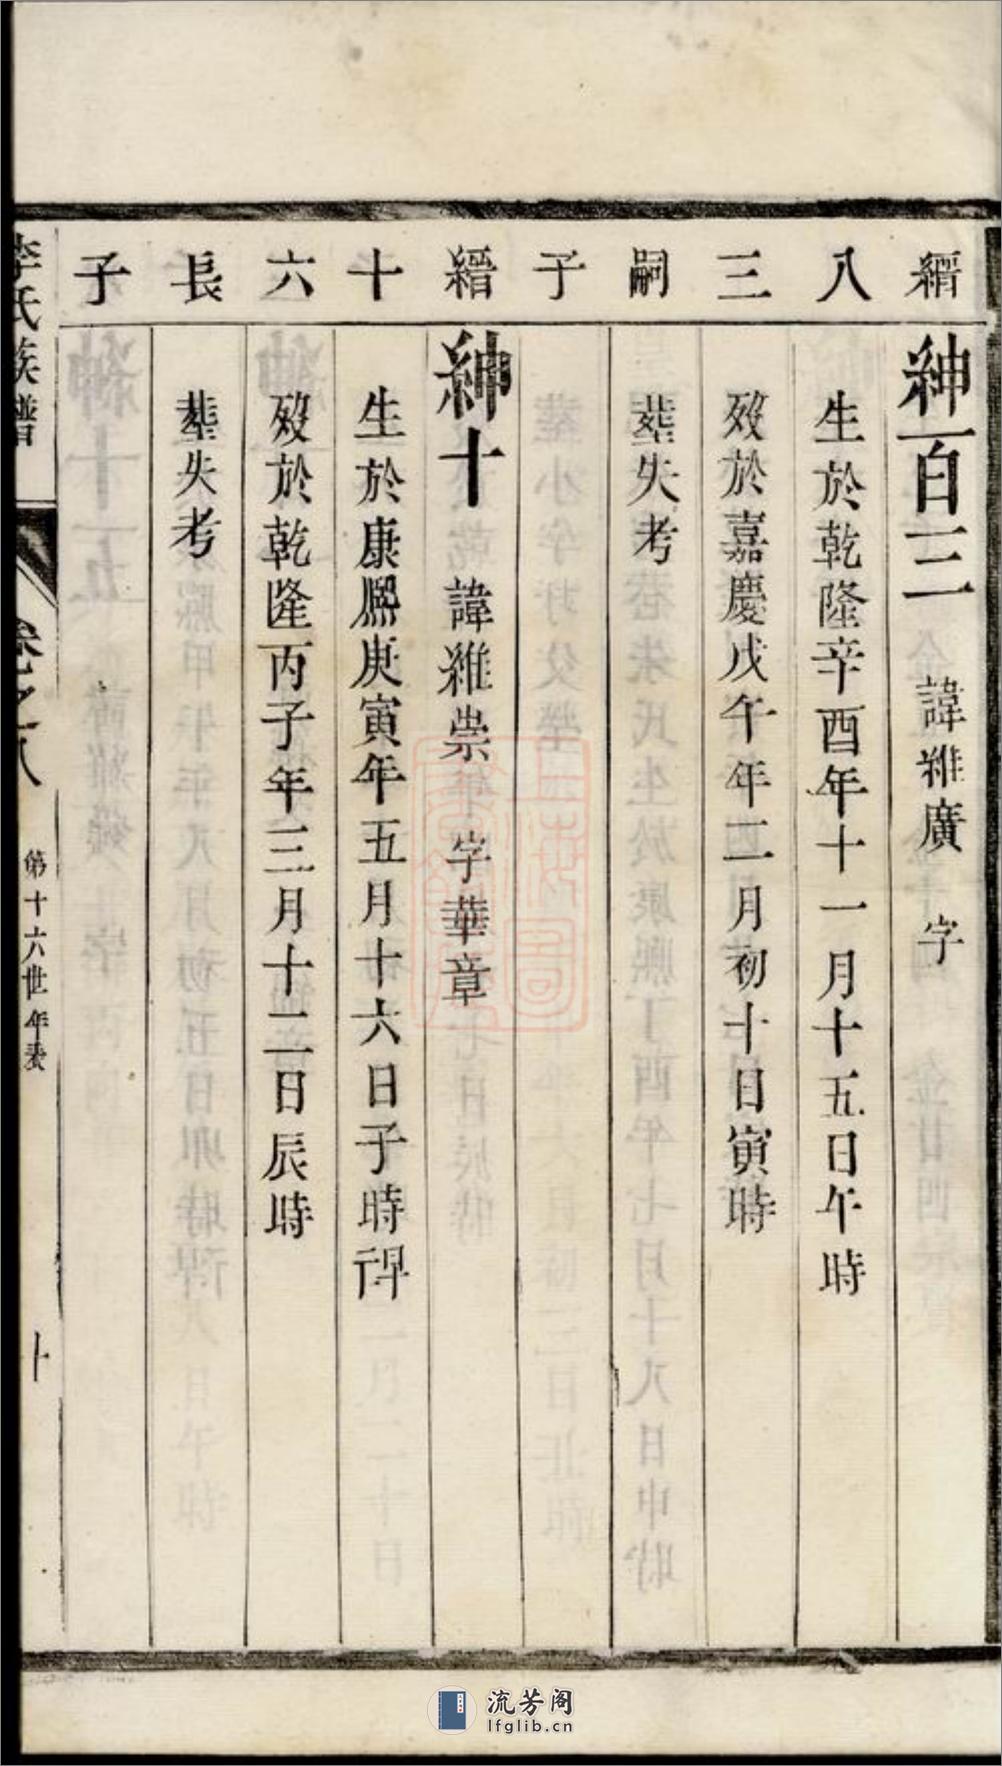 縉八三嗣子
紳一百三 諱維廣 字
生於乾隆辛酉年十一月十五日午時
歿於嘉慶戊午年二月初十日寅時
塟失考
縉十六長子
紳十 諱維崇 字華章
生於康熙庚寅年五月十六日子時
歿於乾隆丙子年三月十二日辰時
塟失考
李氏族譜 卷之八 第十六世年表 十
上海圖書館藏
流芳阁
lfglib.cn